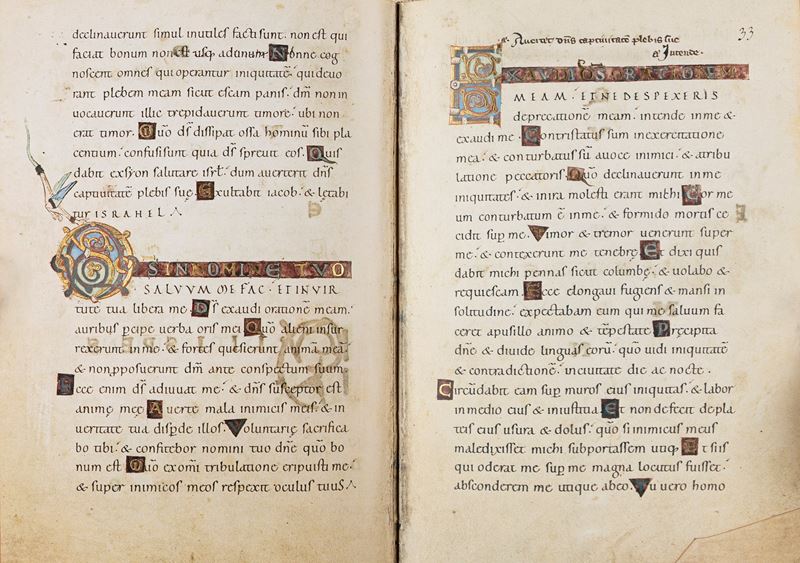 declinauerunt simul inutiles facti sunt. non est qui
faciat bonum non est usq; ad unum. Nonne cog
noscent omnes qui operantur iniquitatē. qui deuo
rant plebem meam sicut escam panis. dm̄ non in
uocauerunt illic trepidauerunt timore. ubi non
erat timor. Quō ds̄ dissipat ossa hominū sibi pla
centium. confusi sunt quia ds̄ spreuit eos. Quis
dabit ex syon salutare isrl̄. dum auerterit dn̄s
captiuitatē plebis suę. Exultabit iacob. & lętabi
tur ISRAHEL
DS IN NOMINE TVO
SALVVM ME FAC. ET IN VIR
tute tua libera me. Ds̄ exaudi orationē meam.
auribus p̄cipe uerba oris mei. Quō alieni insur
rexerunt in me. & fortes quesierunt animā meā.
& non p̄posuerunt dm̄ ante conspectum suum.
Ecce enim ds̄ adiuuat me. & dn̄s susceptor est
animę meę. Auerte mala inimicis meis. & in
ueritate tua disp̄de illos. Voluntarię sacrifica
bo tibi. & confitebor nomini tuo dn̄e quō bo
num est. Quō ex om̄i tribulatione eripuisti me.
& super inimicos meos respexit oculus tuuS.
Auertet dn̄s captiuitatē plebis sue
33
EXAVDI DS ORATIONEM
MEAM. ET NE DESPEXERIS
deprecationē meam. intende in me &
exaudi me. Contristatus sum in exercitatione
mea. & conturbatus sū a uoce inimici. & a tribu
latione peccatoris. Quō declinauerunt in me
iniquitates. & in ira molesti erant michi. Cor me
um conturbatum ē in me. & formido mortis ce
cidit sup̄ me. Timor & tremor uenerunt super
me. & contexerunt me tenebrę. Et dixi quis
dabit michi pennas sicut columbę. & uolabo &
requiescam. Ecce elongaui fugiens & mansi in
solitudine. expectabam eum qui me saluum fa
ceret a pusillo animo & tēpestate. Precipita
dn̄e & diuide linguas eorū. quō uidi iniquitatē
& contradictionē. in ciuitate die ac nocte.
Circūdabit eam sup̄ muros eius iniquitas. & labor
in medio eius & iniustitia. Et non defecit de pla
teis eius usura & dolus. quō si inimicus meus
maledixisset michi supportassem utiq;. Et si is
qui oderat me sup̄ me magna locutus fuisset.
absconderem me utique ab eo. Tu uero homo